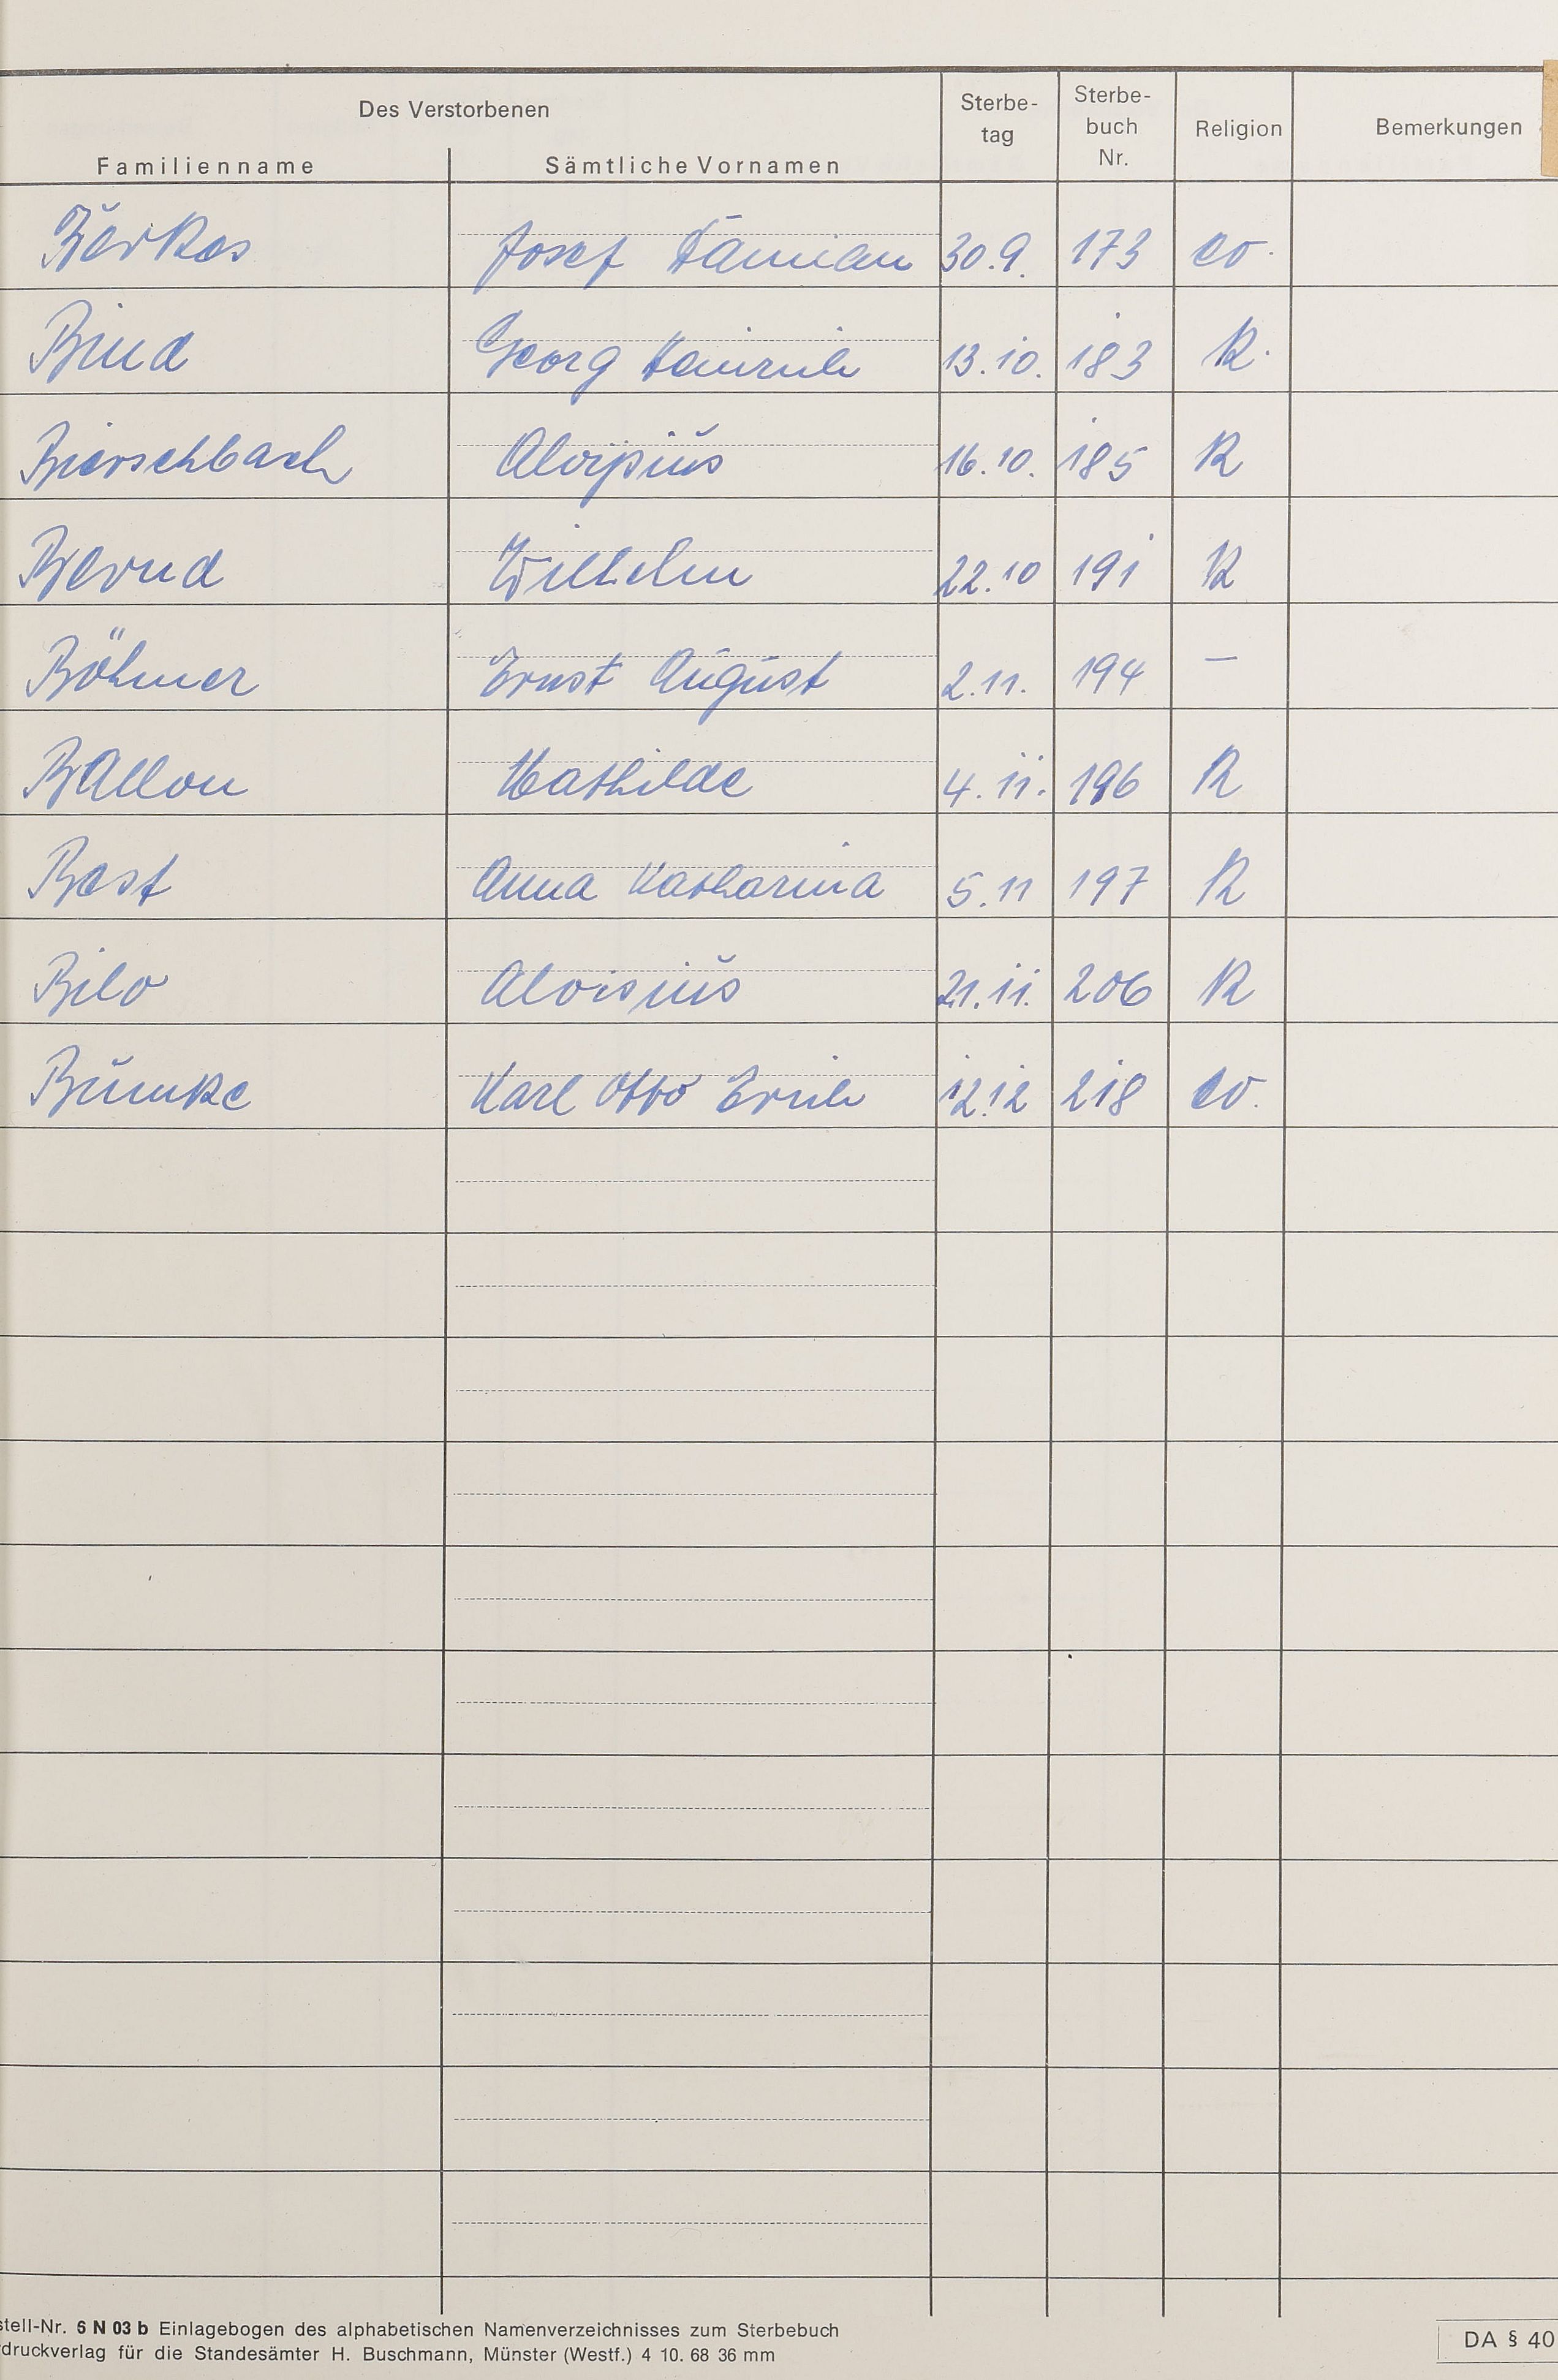 Des Verstorbenen
Familienname Sämtliche Vornamen Sterbe-
tag Sterbe-
buch
Nr. Religion Bemerkungen
Josef Damian 30.9. 173 ev.
Bind Georg Heinrich 13.10. 183 k.
Bierschbach Aloysius 16.10. 185 k
Bernd Wilhelm 22.10 191 k
Böhmer Ernst August 2.11. 194 —
Ballon Mathilde 4.11. 196 k
Best Anna Katharina 5.11 197 k
Bilo Aloisius 21.11. 206 k
Bumke Karl Otto Erich 12.12 218 ev.
stell-Nr. 6 N 03 b Einlagebogen des alphabetischen Namenverzeichnisses zum Sterbebuch
druckverlag für die Standesämter H. Buschmann, Münster (Westf.) 4 10. 68 36 mm
DA § 40